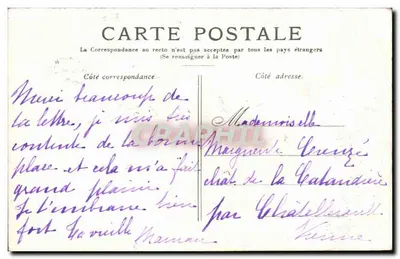 CARTE POSTALE
La Correspondance au recto n'est pas acceptée par tous les pays étrangers
(Se renseigner à la Poste)
Côté correspondance
Côté adresse.
Merci beaucoup de
ta lettre, je suis très
contente de ta bonne
place et cela m'a fait
grand plaisir
Je t'embrasse bien
fort Ta vieille
Maman
Mademoiselle
Marguerite
chât. de la
par Châtellerault
Vienne